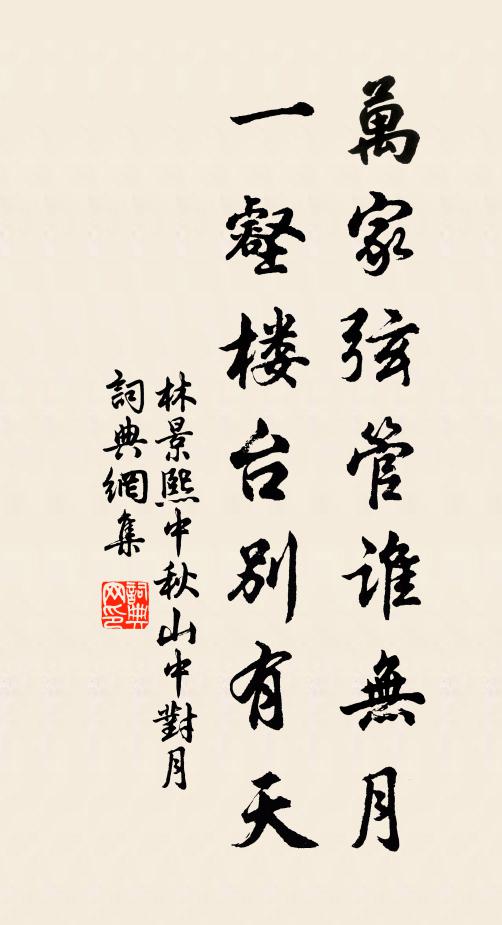 萬家弦管誰無月
一壑楼台別有天
林景熙中秋山中對月
詞典網集
詞典网印